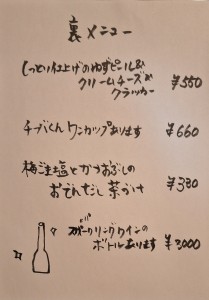 裏メニュー
しっとり仕上げのねずピール&
クリームチーズ&
クラッカー ¥550
チーバくんワンカップあります ¥660
梅ごま塩とかつおぶしの
おでんだし茶づけ ¥380
スパークリングワインの
ボトルあります ¥3000